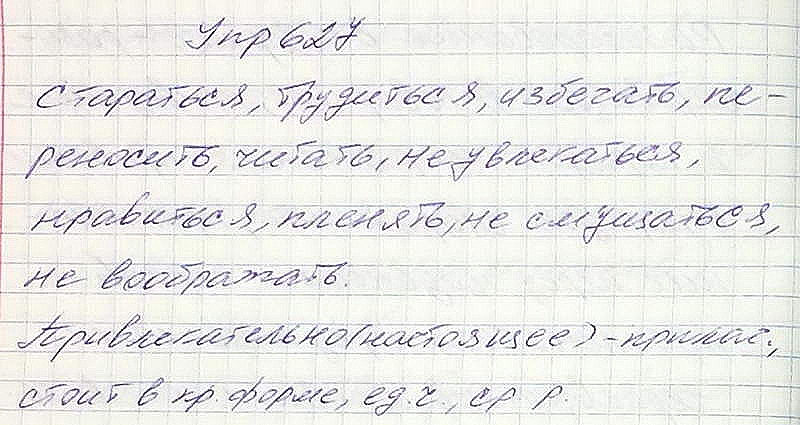 Упр 627
Стараться, трудиться, избегать, пе-
реносить, читать, не увлекаться,
нравиться, пленять, не смущаться,
не воображать.
Привлекательно (настоящее) - прилаг.,
стоит в кр. форме, ед. ч., ср. р.